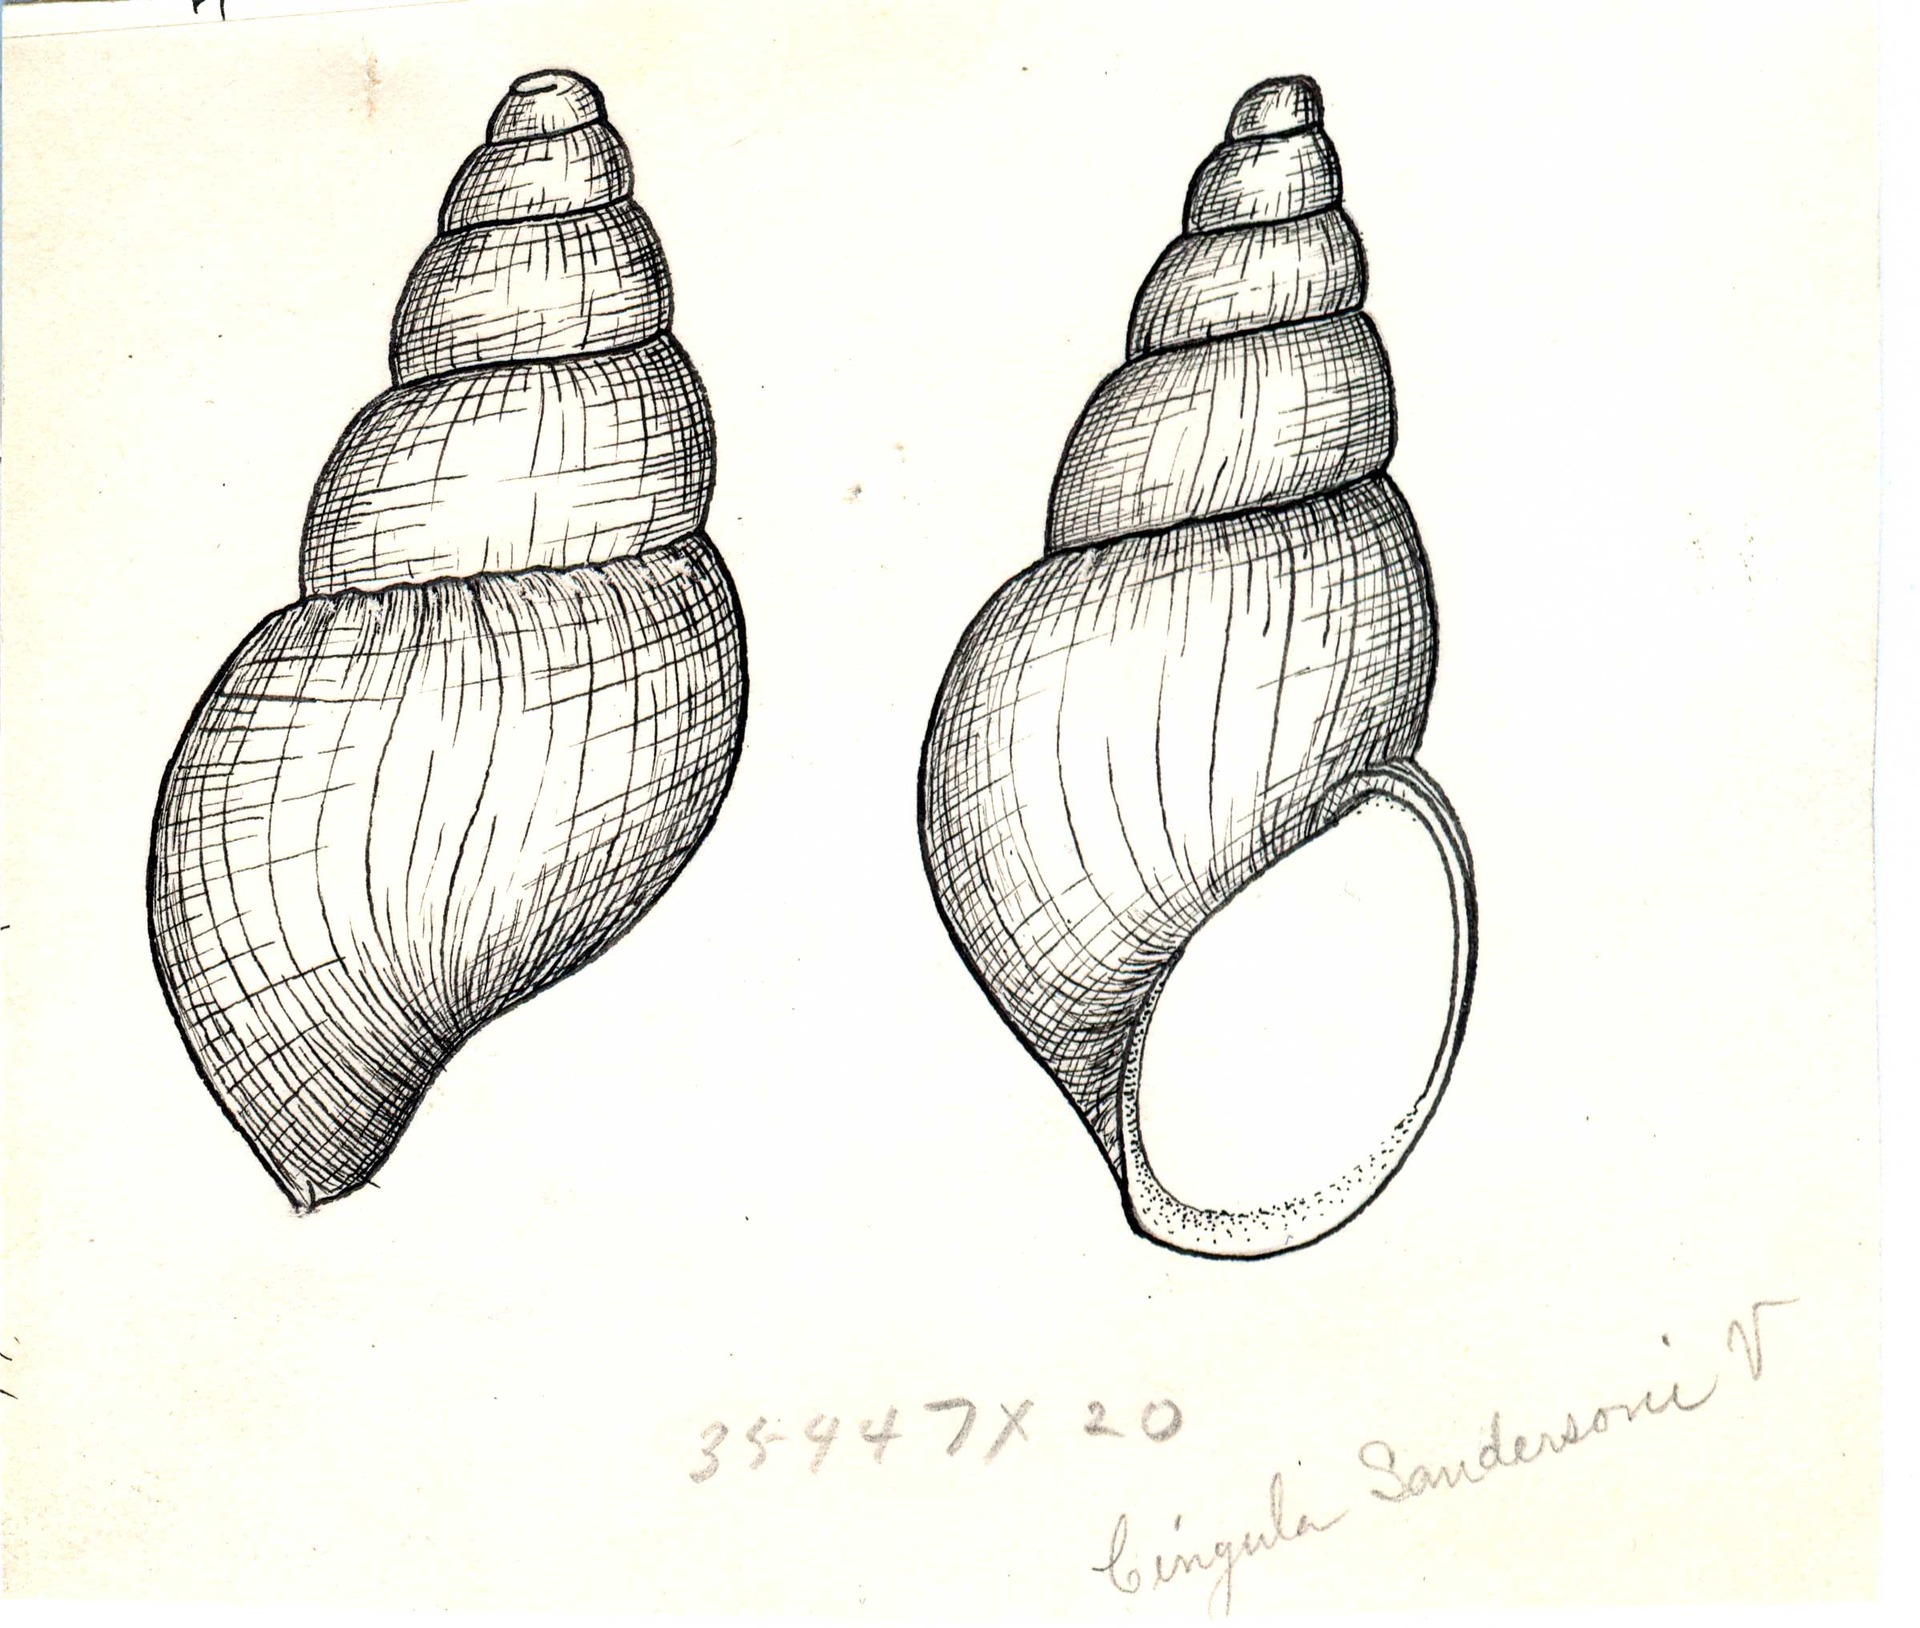 35947X 20
Cingula Sandersoni V